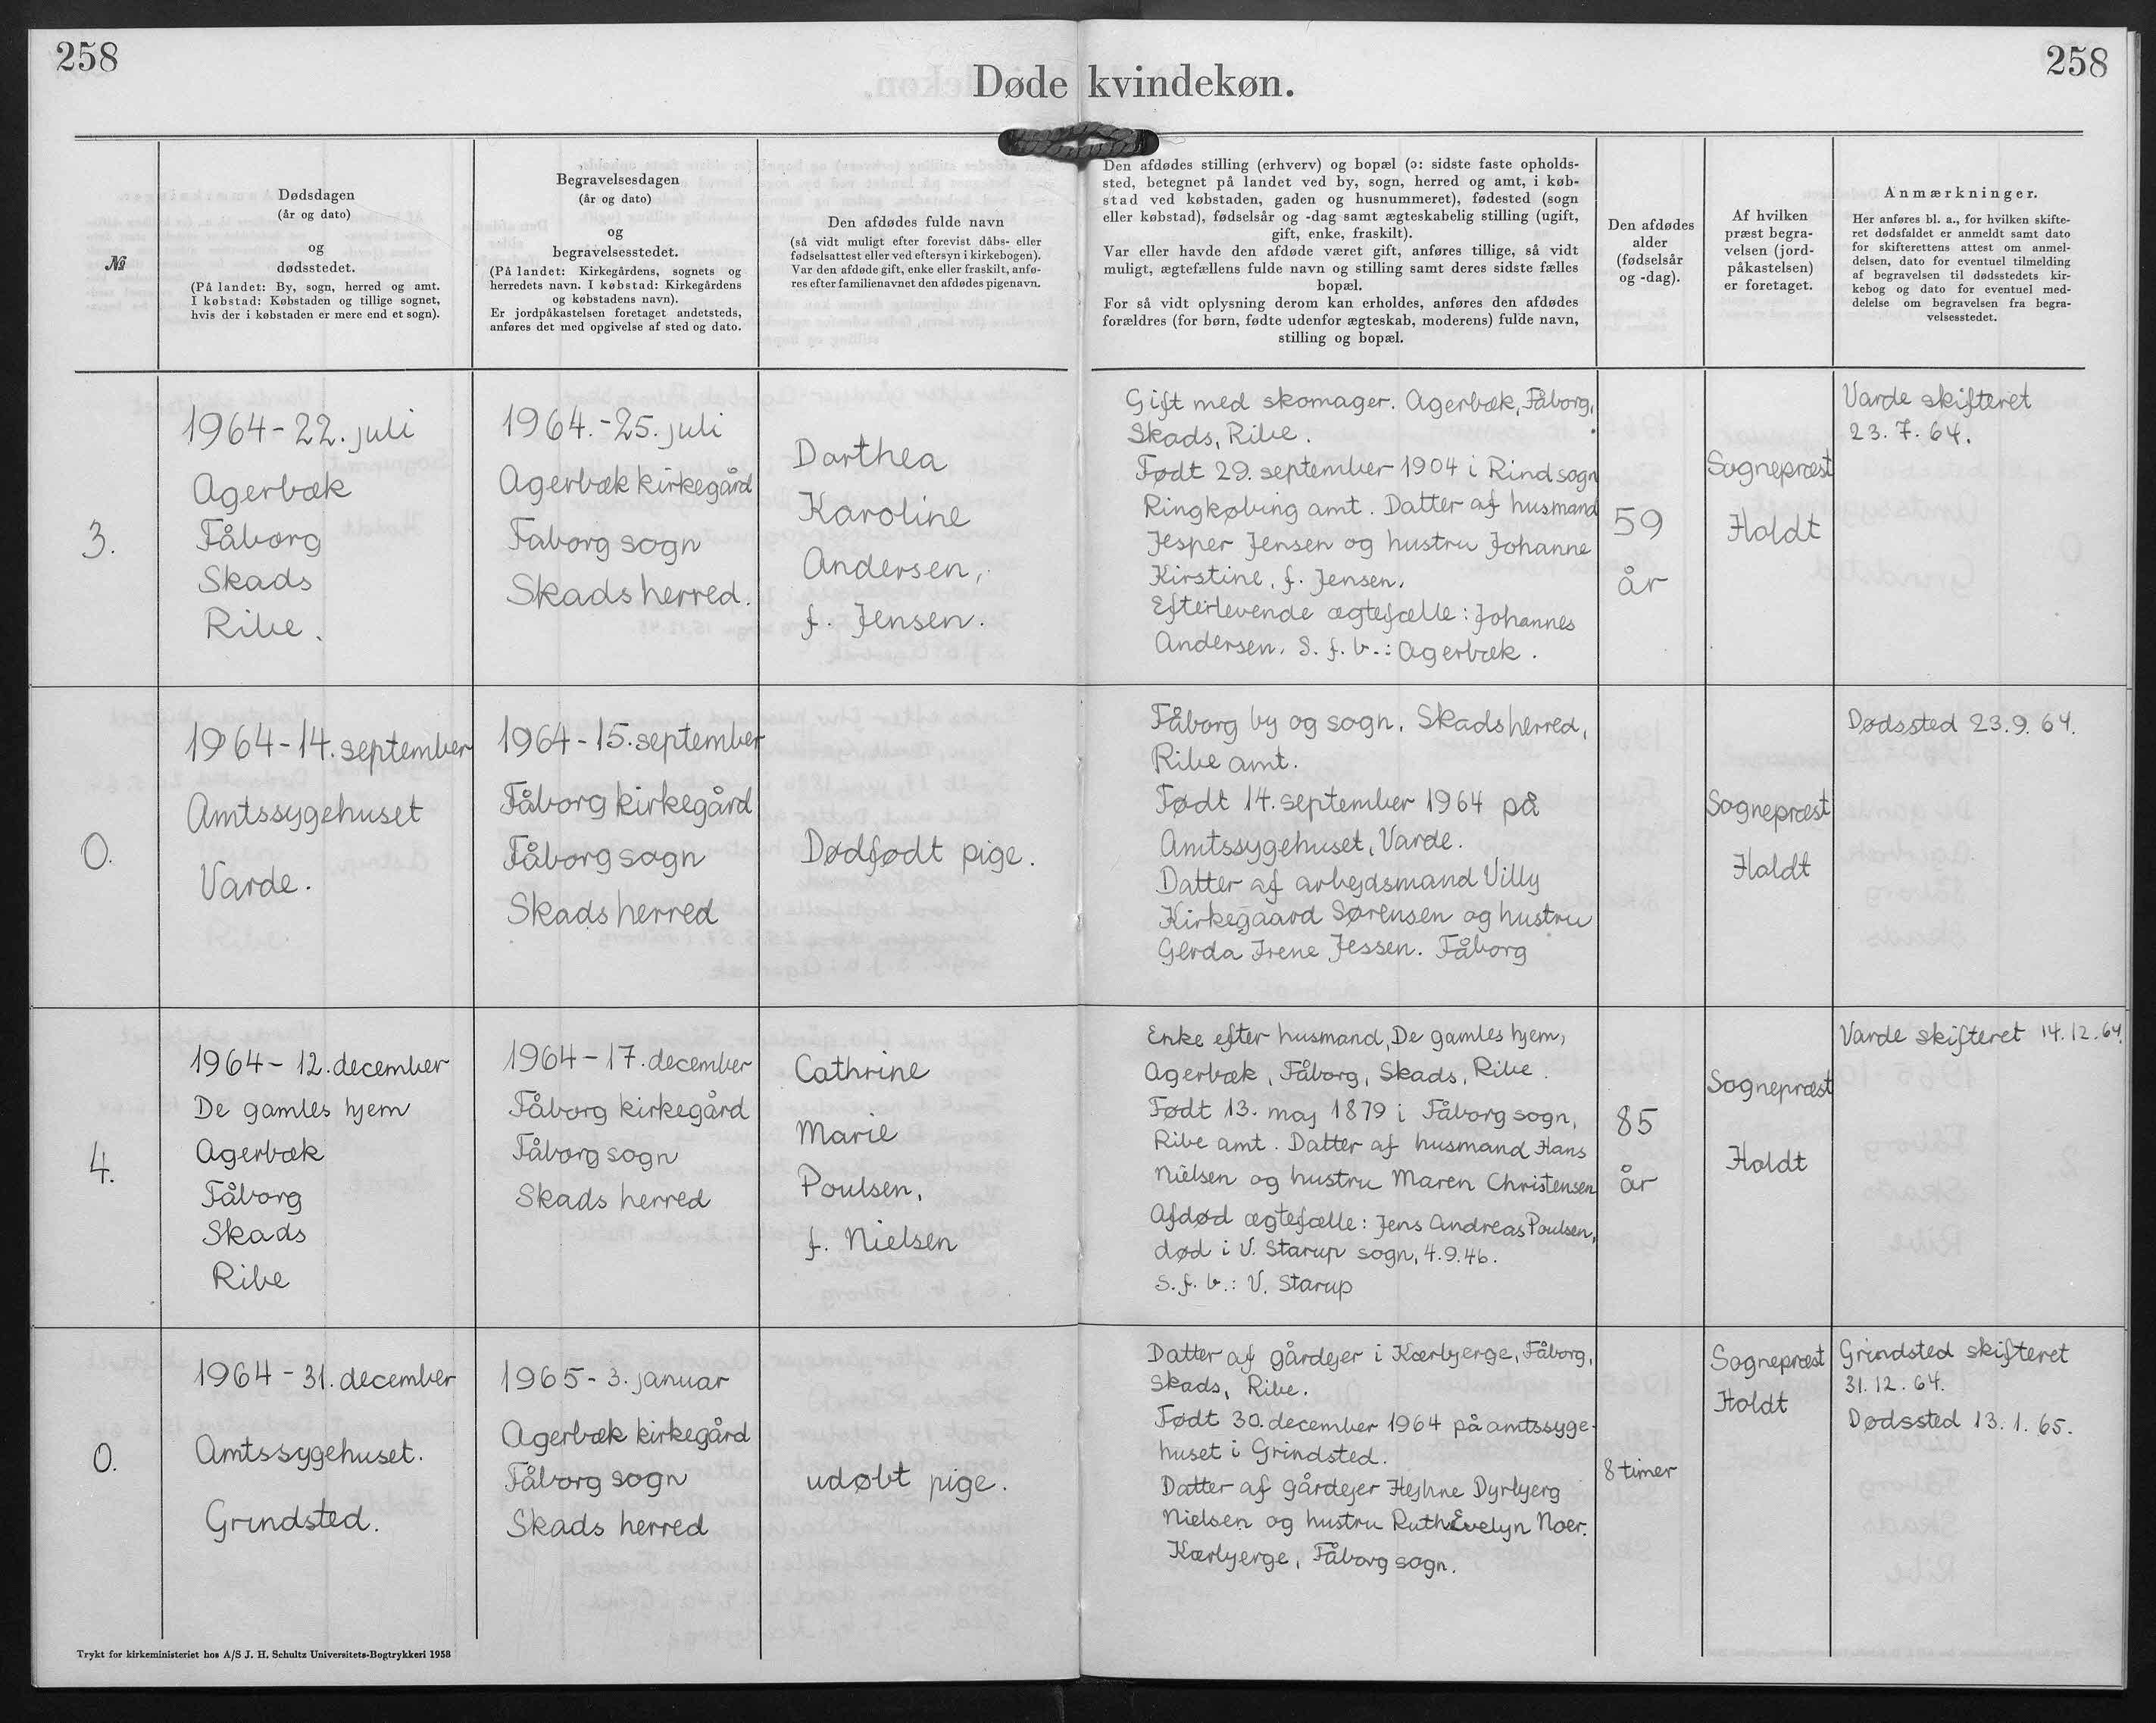 258
258
Døde kvindekøn.
№
Dødsdagen
(år og dato)
og
dødsstedet.
(På landet: By, sogn, herred og amt.
I købstad: Købstaden og tillige sognet,
hvis der i købstaden er mere end et sogn).
Begravelsesdagen
(år og dato)
og
begravelsesstedet.
(På landet: Kirkegårdens, sognets og
herredets navn. I købstad: Kirkegårdens
og købstadens navn).
Er jordpåkastelsen foretaget andetsteds,
anføres det med opgivelse af sted og dato.
Den afdødes fulde navn
(så vidt muligt efter forevist dåbs- eller
fødselsattest eller ved eftersyn i kirkebogen).
Var den afdøde gift, enke eller fraskilt, anfø-
res efter familienavnet den afdødes pigenavn.
Den afdødes stilling (erhverv) og bopæl (ɔ: sidste faste opholds-
sted, betegnet på landet ved by, sogn, herred og amt, i køb-
stad ved købstaden, gaden og husnummeret), fødested (sogn
eller købstad), fødselsår og -dag samt ægteskabelig stilling (ugift,
gift, enke, fraskilt).
Var eller havde den afdøde været gift, anføres tillige, så vidt
muligt, ægtefællens fulde navn og stilling samt deres sidste fælles
bopæl.
For så vidt oplysning derom kan erholdes, anføres den afdødes
forældres (for børn, fødte udenfor ægteskab, moderens) fulde navn,
stilling og bopæl.
Den afdødes
alder
(fødselsår
og -dag).
Af hvilken
præst begra-
velsen (jord-
påkastelsen)
er foretaget.
Anmærkninger.
Her anføres bl. a., for hvilken skifte-
ret dødsfaldet er anmeldt samt dato
for skifterettens attest om anmel-
delsen, dato for eventuel tilmelding
af begravelsen til dødsstedets kir-
kebog og dato for eventuel med-
delelse om begravelsen fra begra-
velsesstedet.
3.
1964 - 22. juli
Agerbæk
Fåborg
Skads
Ribe.
1964. - 25. juli
Agerbæk kirkegård
Faborg sogn
Skads herred.
Dorthea
Karoline
Andersen,
f. Jensen.
Gift med skomager. Agerbæk, Fåborg,
Skads, Ribe.
Født 29. september 1904 i Rind sogn
Ringkøbing amt. Datter af husmand
Jesper Jensen og hustru Johanne
Kirstine, f. Jensen.
Efterlevende ægtefælle: Johannes
Andersen. S. f. b.: Agerbæk.
59
år
Sognepræst
Holdt
Varde skifteret
23. 7. 64.
0.
1964 - 14. september
Amtssygehuset
Varde.
1964 - 15. september
Fåborg kirkegård
Fåborg sogn
Skads herred
Dødfødt pige.
Fåborg by og sogn, Skads herred,
Ribe amt.
Født 14. september 1964 på
Amtssygehuset, Varde.
Datter af arbejdsmand Villy
Kirkegaard Sørensen og hustru
Gerda Irene Jessen. Fåborg
Sognepræst
Holdt
Dødssted 23. 9. 64.
4.
1964 - 12. december
De gamles hjem
Agerbæk
Fåborg
Skads
Ribe
1964 - 17. december
Fåborg kirkegård
Fåborg sogn
Skads herred
Cathrine
Marie
Poulsen,
f. Nielsen
Enke efter husmand, De gamles hjem,
Agerbæk, Fåborg, Skads, Ribe.
Født 13. maj 1879 i Fåborg sogn,
Ribe amt. Datter af husmand Hans
Nielsen og hustru Maren Christensen
Afdød ægtefælle: Jens Andreas Poulsen,
død i V. Starup sogn, 4.9.46.
S. f. b.: V. Starup
85
år
Sognepræst
Holdt
Varde skifteret 14. 12. 64.
0.
1964 - 31. december
Amtssygehuset.
Grindsted.
1965 - 3. januar
Agerbæk kirkegård
Fåborg sogn
Skads herred
udøbt pige.
Datter af gårdejer i Kærbjerge, Fåborg,
Skads, Ribe.
Født 30. december 1964 på amtssyge-
huset i Grindsted.
Datter af gårdejer Hejhne Dyrbjerg
Nielsen og hustru Ruth Evelyn Noer.
Kærbjerge, Fåborg sogn.
8 timer
Sognepræst
Holdt
Grindsted skifteret
31. 12. 64.
Dødssted 13. 1. 65.
Trykt for kirkeministeriet hos A/S J. H. Schultz Universitets-Bogtrykkeri 1958